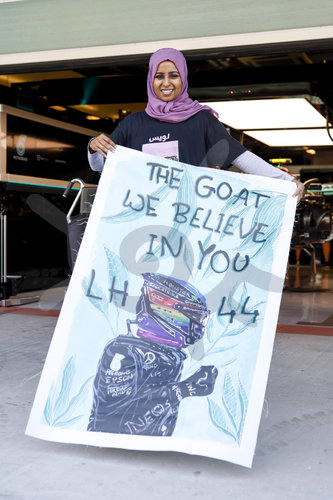 لويس
THE GOAT
WE BELIEVE
IN YOU
LH 44
EPSON
INEOS